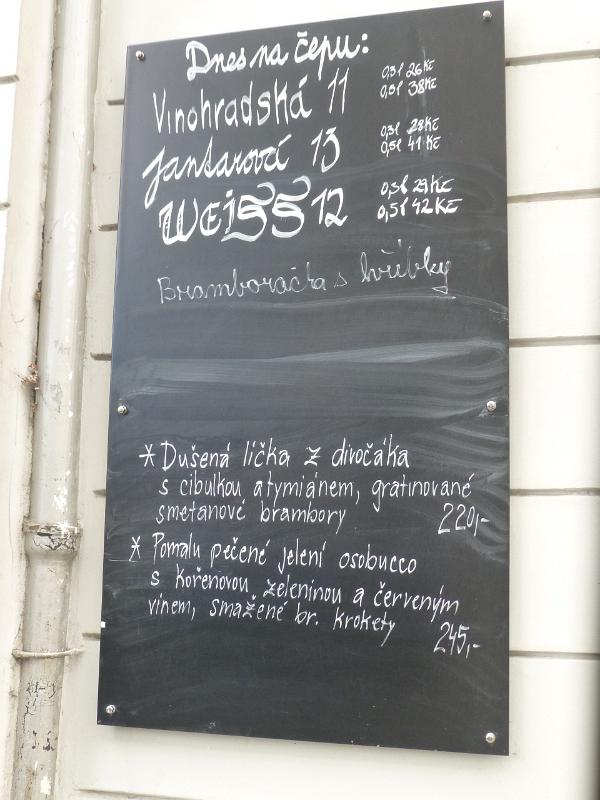 Dnes na čepu:
Vinohradská 11 0,3l 26Kč
0,5l 38Kč
Jantarová 13 0,3l 28Kč
0,5l 41Kč
WEiSS 12 0,3l 29Kč
0,5l 42Kč
Bramboračka s hříbky
* Dušená líčka z divočáka
s cibulkou a tymiánem, gratinované
smetanové brambory 220,-
* Pomalu pečené jelení osobucco
s kořenovou zeleninou a červeným
vínem, smažené br. krokety
245,-